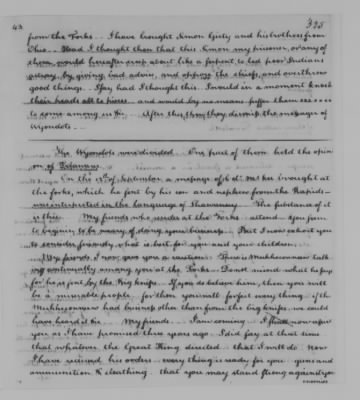 43
325
from the Forks. I have brought Simon Girty and his brothers from
Ohio. Had I thought then that this Simon my prisoner, or any of
them would hereafter creep about like a serpent to led poor Indians
astray by giving bad advice, and oppose the chiefs, and overthrow
good things. I say had I thought this. I would in a moment knock
their heads all to pieces and would by no means suffer them
to come among us &c. After this they
Wyondots
The Wyondots were divided. One part of them held the opin
ion of
On the of September a message of Col. McKee brought at
the forks, which he sent by his son and nephew from the Rapids
uninterpreted in the language of Shawanny. The substance of it
is this. My friends who reside at the Forks attend. You seem
to begin to be weary of doing your business. But I now exhort you
to consider friendly what is best for you and your children.
My friends I now give you a caution. There is Mukheconnuw talk
ing continually among you at the Forks. Do not mind what he says
for he is sent by the Big knifes. If you do believe him, then you will
be a miserable people, for then you will forfeit every thing if the
Mukheconnuw had business other than from the big knifes we could
have heard it &c. My friends I am coming I now
you as I have promised three years ago. I did say at that time
that whatever the Great King directed that I will do. Now
I have received his orders every thing is ready for you guns and
ammunition & cloathing that you may stand strong against your
enemies